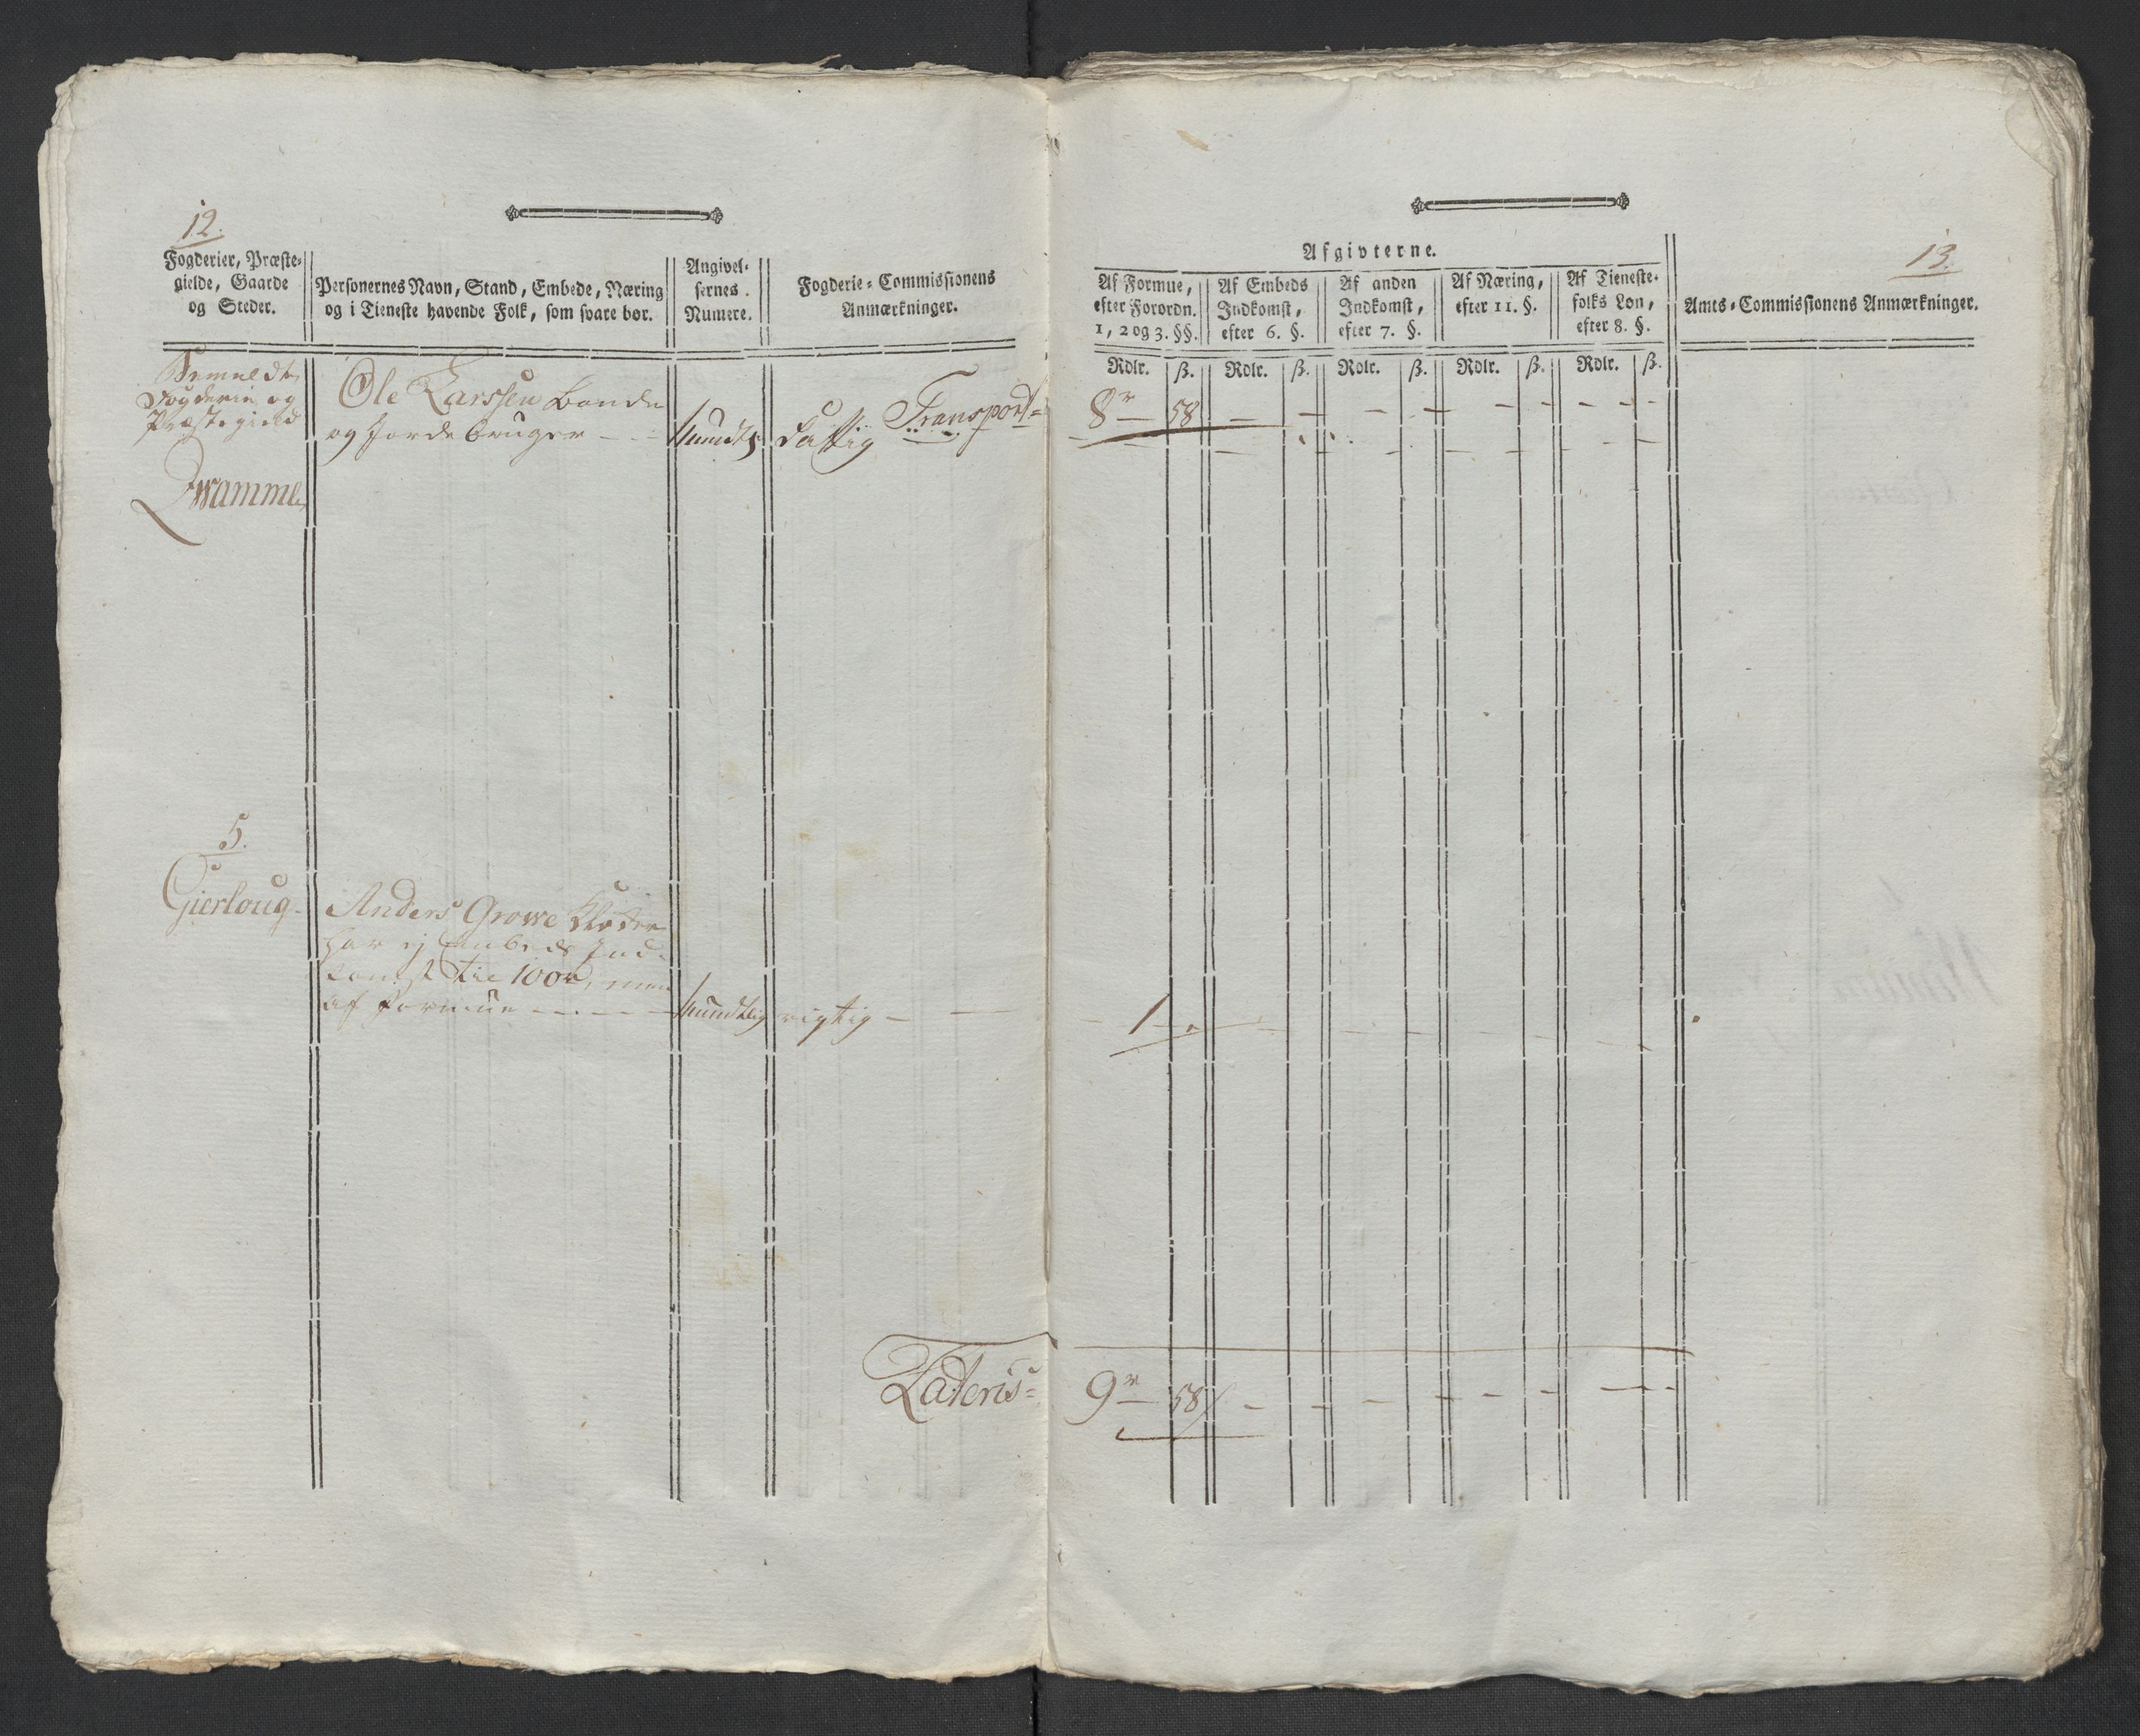 12.
Fogderier, Præste-
gielde, Gaarde
og Steder.
Personernes Navn, Stand, Embede, Næring
og i Tieneste havende Folk, som svare bør.
Angivel-
sernes
Numere.
Fogderie-Commissionens
Anmærkninger.
Bemeldte
Fogderie og
Præstegield
Ole Larssen Bonde
og Jordebruger
Transport
8 58
5.
Gierloug
Anders Growe
har ej Embeds Ind-
komst til 100 men
af Formue mundtlig rigtig
1
Lateris
9 58
Afgivterne.
13.
Af Formue,
efter Forordn.
1, 2 og 3. §§.
Af Embeds
Indkomst,
efter 6. §.
Af anden
Indkomst,
efter 7. §.
Af Næring,
efter 11. §.
Af Tieneste-
folks Løn,
efter 8. §.
Amts-Commissionens Anmærkninger.
Rdlr. ß. Rdlr. ß. Rdlr. ß. Rdlr. ß. Rdlr. ß.